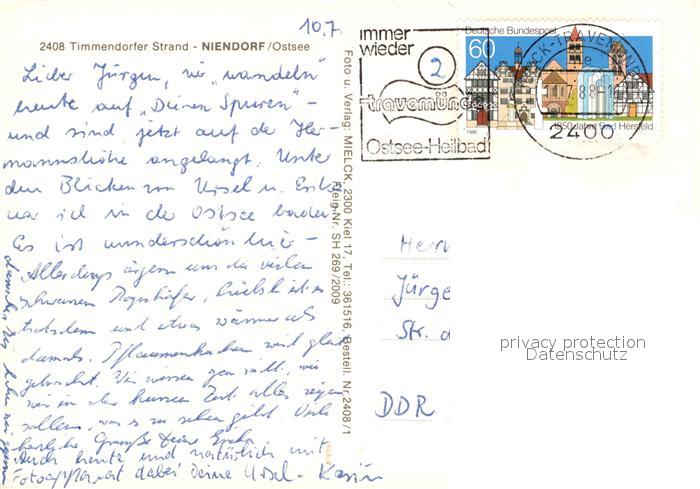 10.7.
2408 Timmendorfer Strand - NIENDORF/Ostsee
Lieber Jürgen, wir "wandeln"
heute auf "Deinen Spuren" -
und sind jetzt auf der Her-
mannshöhe angelangt. Unter
den Blicken von Ursel u. Erika
war ich in der Ostsee baden.
Es ist wunderschön hier -
Allerdings ärgern uns die vielen
schwarzen käfer, ist es
trotzdem und etwas wärmer als
damals. Pflaumenkuchen wird gleich
gebracht. Wir wissen gar nicht, wie
wir in der kurzen Zeit alles zeigen
sollen, was es zu sehen gibt. Viele
herzliche Grüße Deine
Auch heute und natürlich mit
Fotoapparat dabei Deine Ursel - Karin
Foto u. Verlag: MIELCK, 2300 Kiel 17, Tel.: 361516, Bestell. Nr. 2408/1
Freig. Nr. SH 269/2009
immer
wieder
2
travemünde
Ostsee-Heilbad
Deutsche Bundespost
60
1250 Jahre Bad Hersfeld
1986
LÜBECK-TRAVEMÜNDE
2400
Herrn
Jürge
Str. d
DDR
privacy protection
Datenschutz